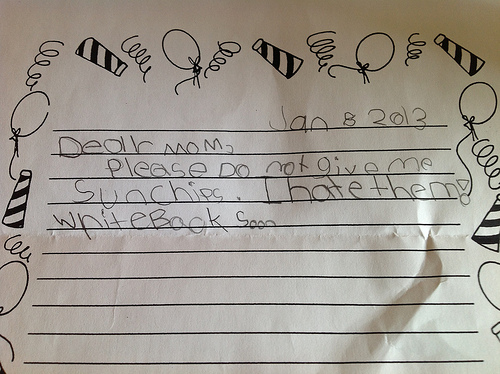 Jan 8 2013
Dear mom,
Please Do not give me
Sunchips. I hate them!
write Back Soon